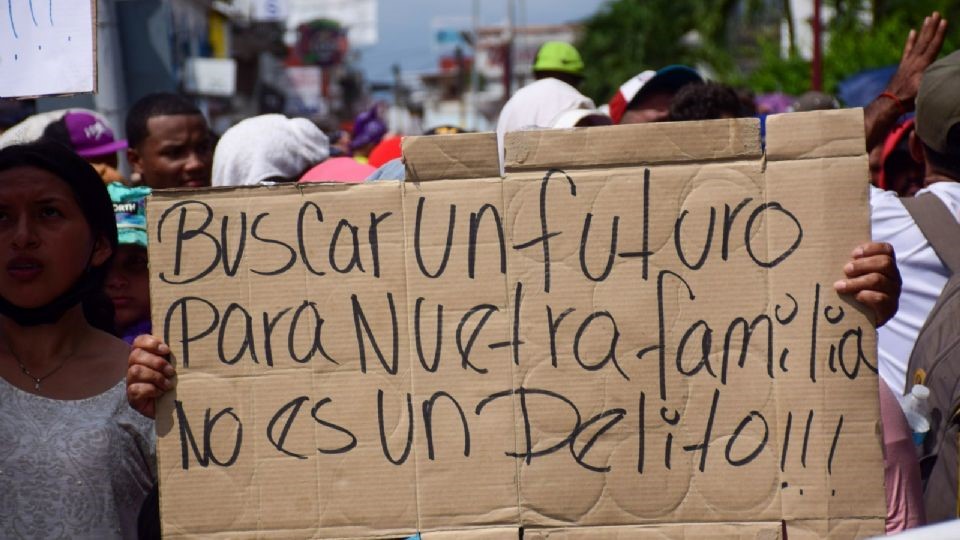 NORTH
Buscar un futuro
Para Nuetra familia
No es un Delito!!!